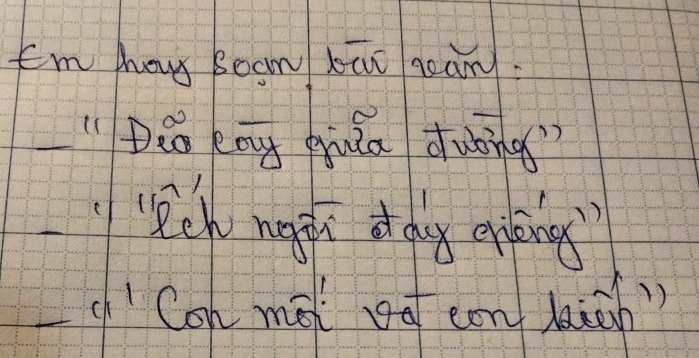 Em hãy soạn bài văn:
- "Đẽo cày giữa đường"
- "Ếch ngồi đáy giếng"
- "Con mối và con kiến"